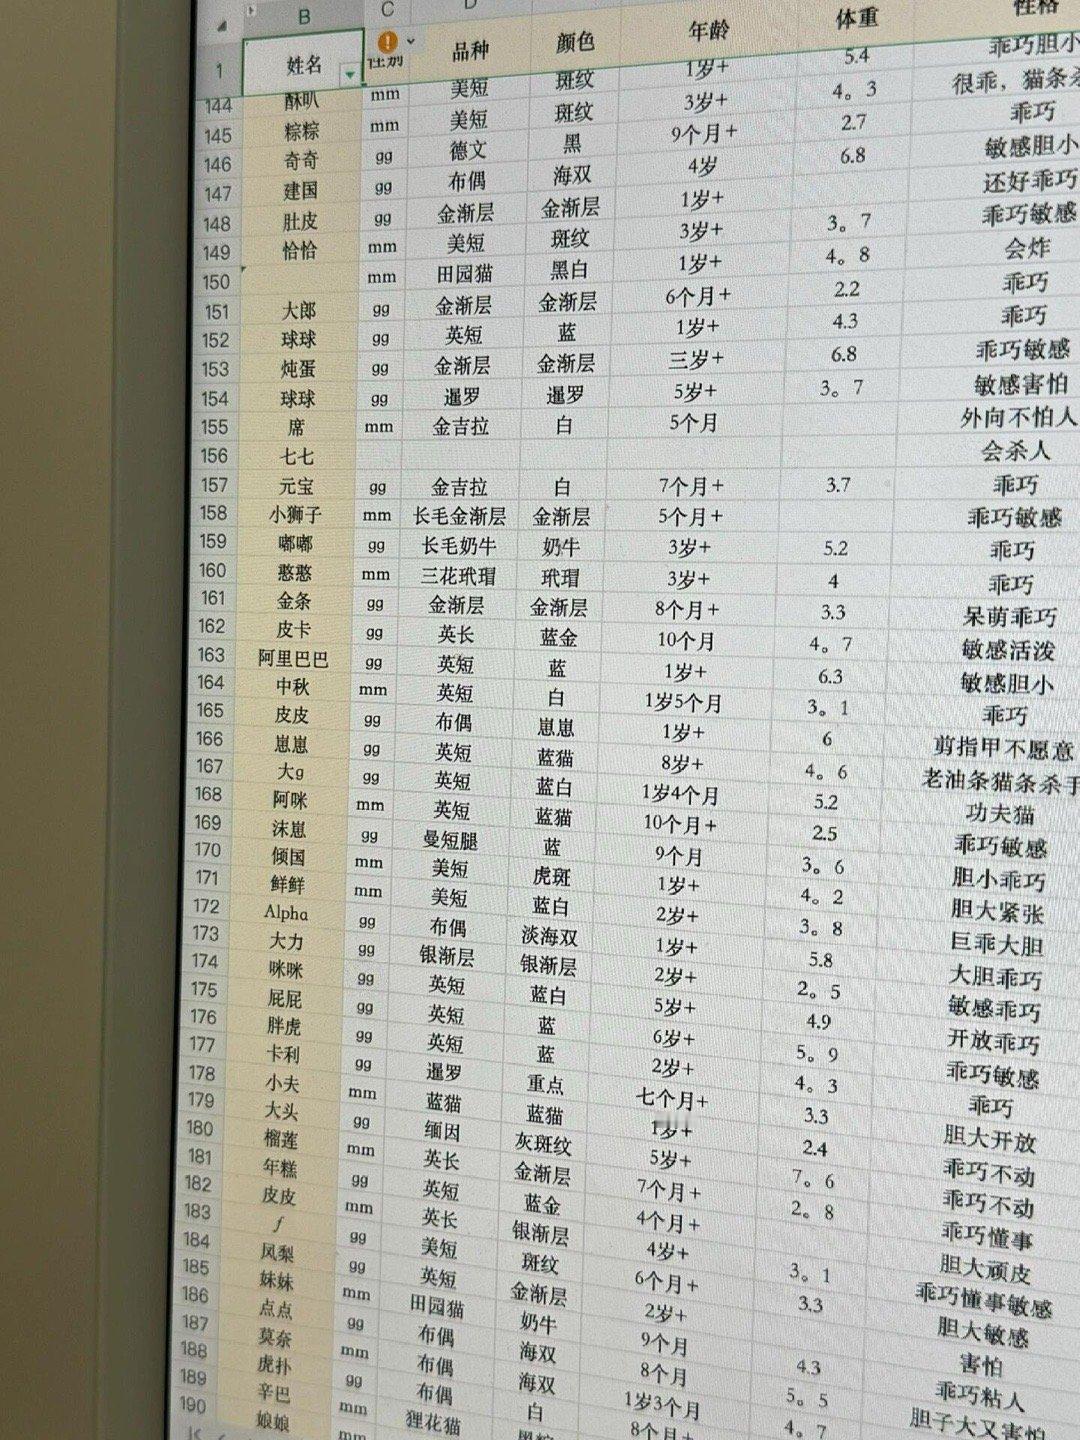 B C D
1 姓名 性别 品种 颜色 年龄 体重 性格
144 酥叭 mm 美短 斑纹 1岁+ 5.4 乖巧胆小
145 粽粽 mm 美短 斑纹 3岁+ 4。3 很乖，猫条杀
146 奇奇 gg 德文 黑 9个月+ 2.7 乖巧
147 建国 gg 布偶 海双 4岁 6.8 敏感胆小
148 肚皮 gg 金渐层 金渐层 1岁+ 还好乖巧
149 恰恰 mm 美短 斑纹 3岁+ 3。7 乖巧敏感
150 mm 田园猫 黑白 1岁+ 4。8 会炸
151 大郎 gg 金渐层 金渐层 6个月+ 2.2 乖巧
152 球球 gg 英短 蓝 1岁+ 4.3 乖巧
153 炖蛋 gg 金渐层 金渐层 三岁+ 6.8 乖巧敏感
154 球球 gg 暹罗 暹罗 5岁+ 3。7 敏感害怕
155 席 mm 金吉拉 白 5个月 外向不怕人
156 七七 会杀人
157 元宝 gg 金吉拉 白 7个月+ 3.7 乖巧
158 小狮子 mm 长毛金渐层 金渐层 5个月+ 乖巧敏感
159 嘟嘟 gg 长毛奶牛 奶牛 3岁+ 5.2 乖巧
160 憨憨 mm 三花玳瑁 玳瑁 3岁+ 4 乖巧
161 金条 gg 金渐层 金渐层 8个月+ 3.3 呆萌乖巧
162 皮卡 gg 英长 蓝金 10个月 4。7 敏感活泼
163 阿里巴巴 gg 英短 蓝 1岁+ 6.3 敏感胆小
164 中秋 mm 英短 白 1岁5个月 3。1 乖巧
165 皮皮 gg 布偶 崽崽 1岁+ 6 剪指甲不愿意
166 崽崽 gg 英短 蓝猫 8岁+ 4。6 老油条猫条杀手
167 大g gg 英短 蓝白 1岁4个月 5.2 功夫猫
168 阿咪 mm 英短 蓝猫 10个月+ 2.5 乖巧敏感
169 沫崽 gg 曼短腿 蓝 9个月 3。6 胆小乖巧
170 倾国 mm 美短 虎斑 1岁+ 4。2 胆大紧张
171 鲜鲜 mm 美短 蓝白 2岁+ 3。8 巨乖大胆
172 Alpha gg 布偶 淡海双 1岁+ 5.8 大胆乖巧
173 大力 gg 银渐层 银渐层 2岁+ 2。5 敏感乖巧
174 咪咪 gg 英短 蓝白 5岁+ 4.9 开放乖巧
175 屁屁 gg 英短 蓝 6岁+ 5。9 乖巧敏感
176 胖虎 gg 英短 蓝 2岁+ 4。3 乖巧
177 卡利 gg 暹罗 重点 七个月+ 3.3 胆大开放
178 小夫 mm 蓝猫 蓝猫 1岁+ 2.4 乖巧不动
179 大头 gg 缅因 灰斑纹 5岁+ 7。6 乖巧不动
180 榴莲 mm 英长 金渐层 7个月+ 2。8 乖巧懂事
181 年糕 gg 英短 蓝金 4个月+ 胆大顽皮
182 皮皮 mm 英长 银渐层 4岁+ 3。1 乖巧懂事敏感
183 f gg 美短 斑纹 6个月+ 3.3 胆大敏感
184 凤梨 gg 英短 金渐层 2岁+ 害怕
185 妹妹 mm 田园猫 奶牛 9个月 4.3 乖巧粘人
186 点点 gg 布偶 海双 8个月 5。5 胆子大又害怕
187 莫奈 mm 布偶 海双 1岁3个月 4。7
188 虎扑 gg 布偶 白 8个月+
189 辛巴 mm 狸花猫
190 娘娘 mm